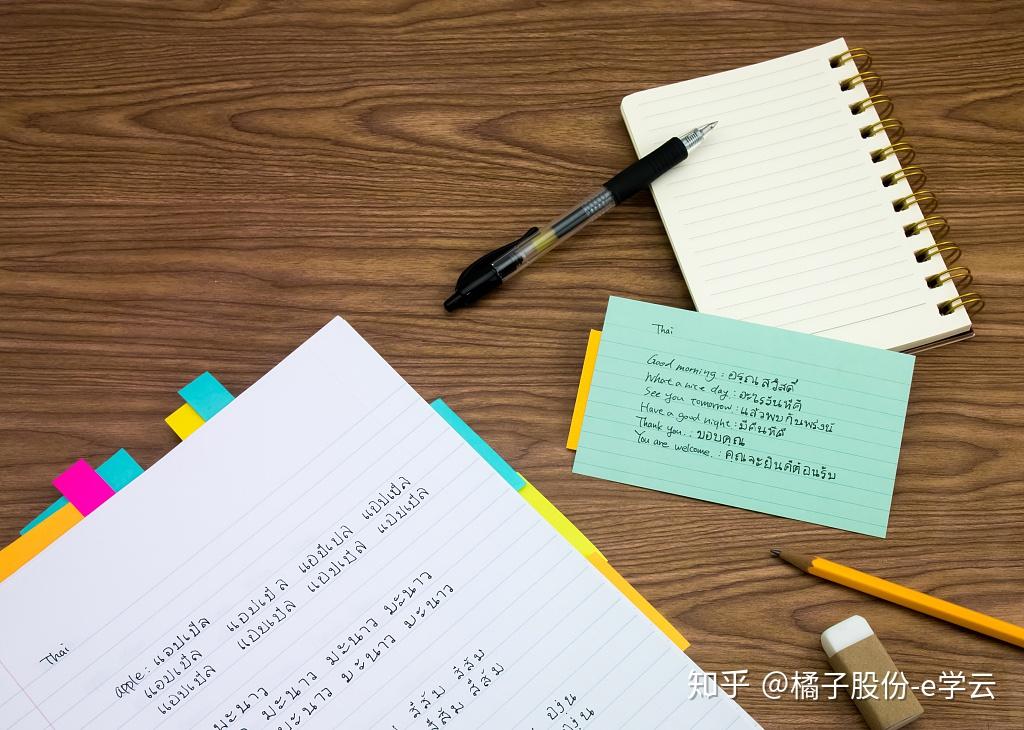 Thai
Good morning : อรุณสวัสดิ์
What a nice day : อะไรวันที่ดี
See you tomorrow : แล้วพบกันพรุ่งนี้
Have a good night : มีคืนที่ดี
Thank you. : ขอบคุณ
You are welcome. : คุณจะยินดีต้อนรับ
Thai
apple : แอปเปิล แอปเปิล แอปเปิล แอปเปิล
แอปเปิล แอปเปิล แอปเปิล แอปเปิล
แอปเปิล
มะนาว มะนาว มะนาว มะนาว
มะนาว มะนาว มะนาว
สีส้ม สีส้ม
สีส้ม สีส้ม
องุ่น
องุ่น
知乎 @橘子股份-e学云